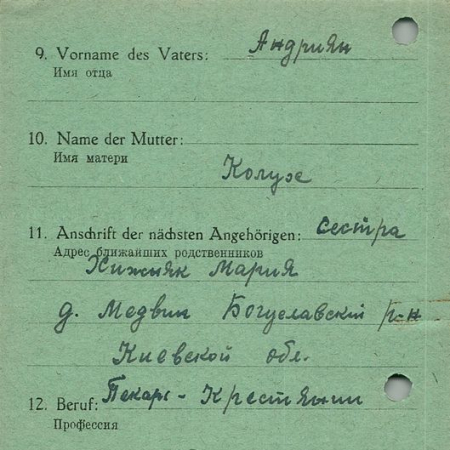 9. Vorname des Vaters: Андриян
Имя отца
10. Name der Mutter:
Имя матери
Колуже
11. Anschrift der nächsten Angehörigen: сестра
Адрес ближайших родственников
Хижняк Мария
д. Медвин Богуславский р-н
Киевской обл.
12. Beruf: Пекарь - Крестьянин
Профессия